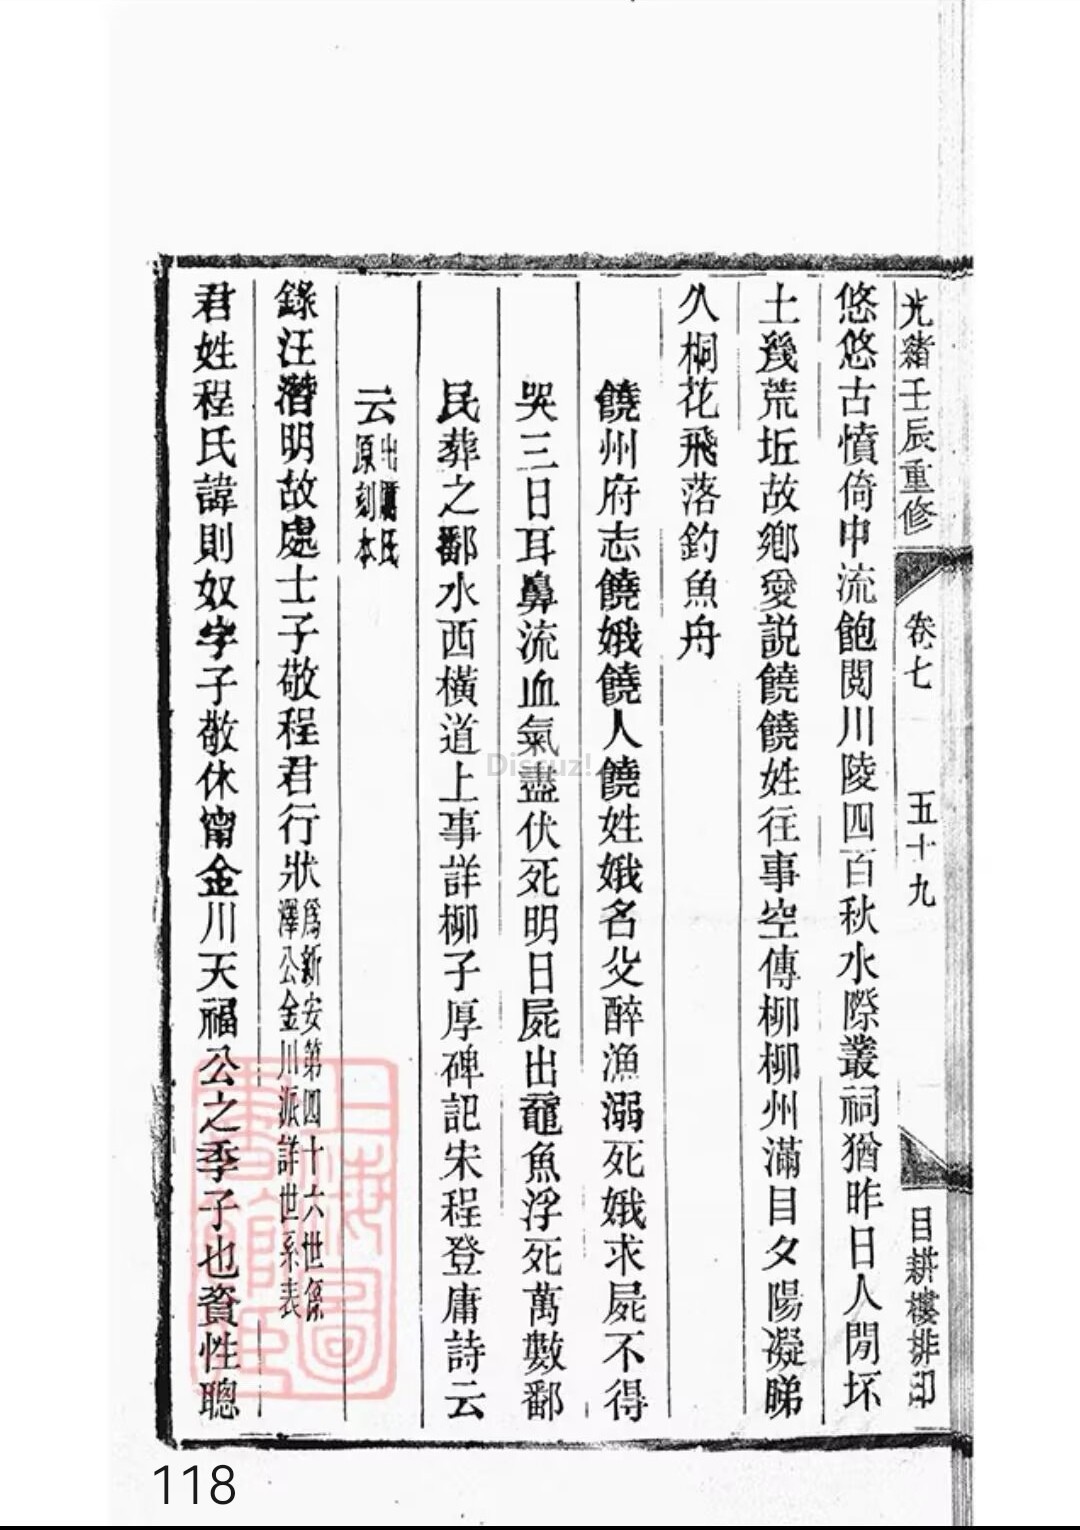 光緒壬辰重修 卷七 五十九 目耕樓排印
悠悠古憤倚中流飽閱川陵四百秋水際叢祠猶昨日人閒坏
土幾荒坵故鄉愛説饒饒姓往事空傳柳柳州滿目夕陽凝睇
久桐花飛落釣魚舟
饒州府志饒娥饒人饒姓娥名父醉漁溺死娥求屍不得
哭三日耳鼻流血氣盡伏死明日屍出黿魚浮死萬數鄱
民葬之鄱水西橫道上事詳柳子厚碑記宋程登庸詩云
云出
氏
原刻本
錄汪濳明故處士子敬程君行狀爲新安第四十六世係
澤公金川派詳世系表
君姓程氏諱則奴字子敬休甯金川天福公之季子也資性聰
上海圖
書館藏
Discuz!
118